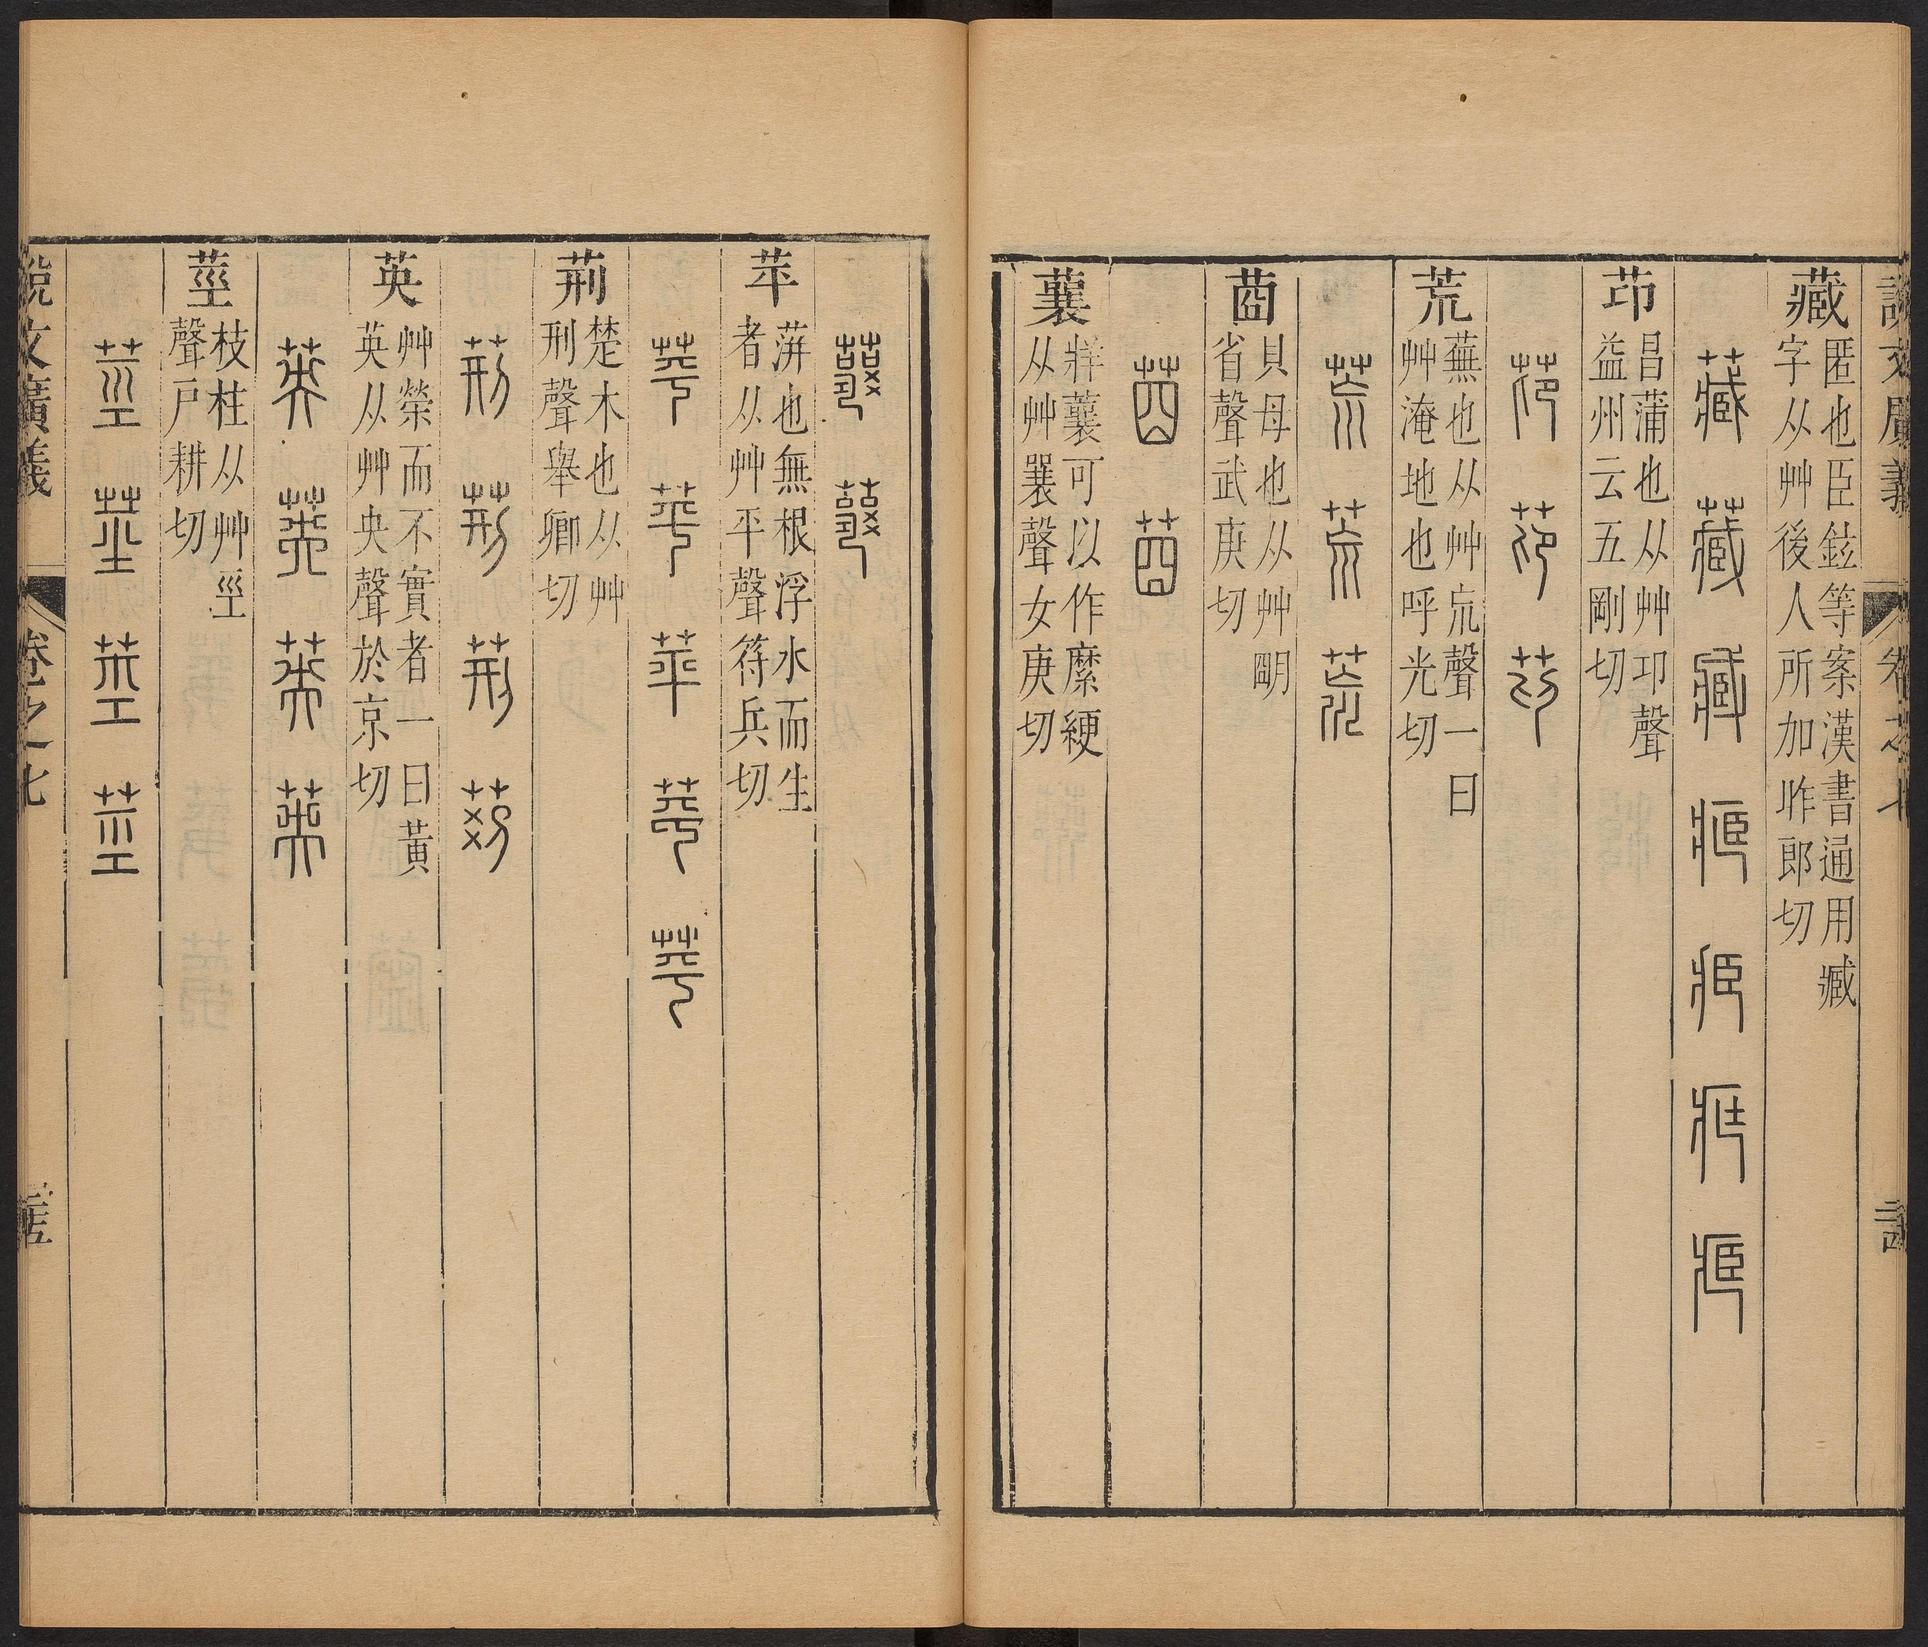 說文廣義 卷之七
藏
匿也臣鉉等案漢書通用臧
字从艸後人所加昨郎切
藏 藏 臧
茚
昌蒲也从艸邛聲
益州云五剛切
茚 茚 茚
荒
蕪也从艸巟聲一曰
艸淹地也呼光切
荒 荒 荒
莔
貝母也从艸朙
省聲武庚切
莔 莔
蘘
牂蘘可以作縻綆
从艸襄聲女庚切
蘘 蘘
苹
蓱也無根浮水而生
者从艸平聲符兵切
苹 苹 苹 苹 苹
荊
楚木也从艸
刑聲舉卿切
荊 荊 荊 荊
英
艸榮而不實者一曰黃
英从艸央聲於京切
英 英 英 英
莖
枝柱从艸巠
聲戶耕切
莖 莖 莖 莖
說文廣義 卷之七